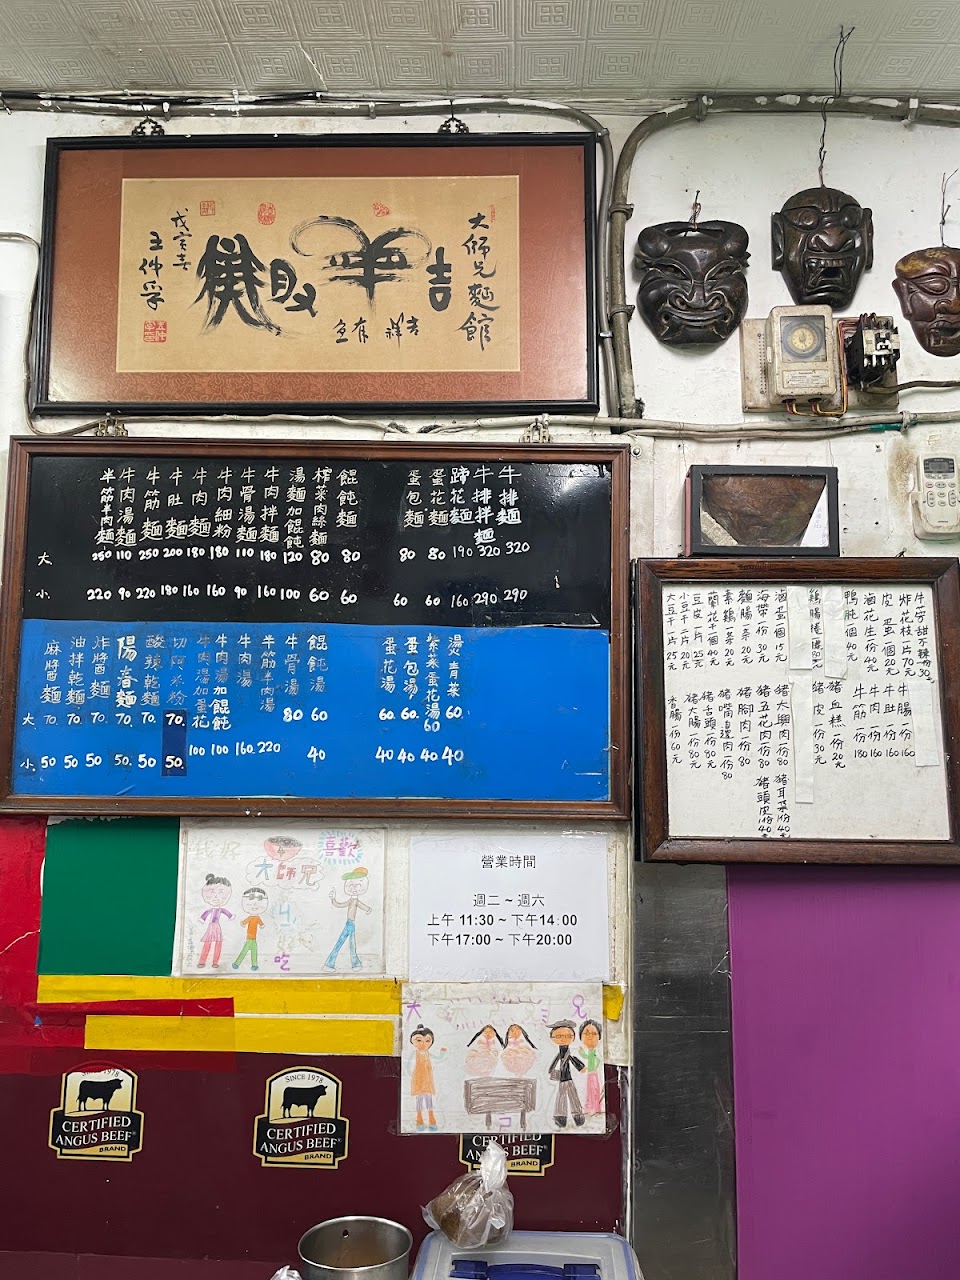 大師兄麵館
吉祥
牛排麵 320 290
牛排拌麵 320 290
蹄花麵 190 160
蛋花麵 80 60
蛋包麵 80 60
餛飩麵 80 60
榨菜肉絲麵 80 60
湯麵加餛飩 120 100
牛肉拌麵 180 160
牛骨湯麵 110 90
牛肉細粉 180 160
牛肉麵 180 160
牛肚麵 200 180
牛筋麵 250 220
牛肉湯麵 110 90
半筋半肉麵 250 220
大.
小.
燙青菜 60 40
紫菜蛋花湯 60 40
蛋包湯 60. 40
蛋花湯 60. 40
餛飩湯 60 40
牛骨湯 80
半筋半肉湯 220
牛肉湯 160.
牛肉湯加餛飩 100
牛肉湯加蛋花 100
切阿米粉 70. 50.
酸辣乾麵 70. 50
陽春麵 70. 50.
炸醬麵 70. 50
油拌乾麵 70. 50
麻醬麵 70. 50
大.
小.
炸花枝一片70元
皮蛋一個20元
滷花生一份40元
鴨肫個40元
雞腸捲一捲80元
滷蛋一個15元
海帶一份30元
麵腸一条20元
素鷄一条20元
蘭花干一個40元
豆皮一片25元
小豆干二片20元
大豆干一片25元
牛腸一份160
牛肚一份160
牛肉一份160
牛筋一份180
豬血糕一份20元
豬皮一份30元
豬大腸肉一份80
豬耳菜1份40元
豬五花肉一份80
豬頭皮1份40元
豬腳肉一份80
豬嘴邊肉一份80
豬舌頭一份80元
豬大腸一份80元
香腸一份60元
我好
喜歡
大師兄
吃
營業時間
週二 ~ 週六
上午 11:30 ~ 下午14:00
下午17:00 ~ 下午20:00
大
兄
SINCE 1978
CERTIFIED
ANGUS BEEF®
BRAND
SINCE 1978
CERTIFIED
ANGUS BEEF®
BRAND
CERTIFIED
ANGUS BEEF®
BRAND